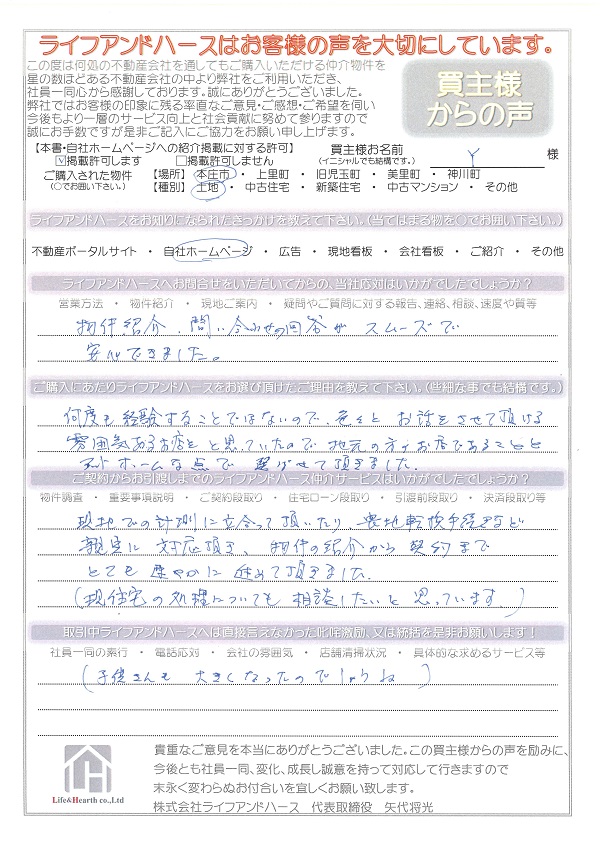 ライフアンドハースはお客様の声を大切にしています。
この度は何処の不動産会社を通してもご購入いただける仲介物件を
星の数ほどある不動産会社の中より弊社をご利用いただき、
社員一同心から感謝しております。誠にありがとうございました。
弊社ではお客様の印象に残る率直なご意見・ご感想・ご希望を伺い
今後もより一層のサービス向上と社会貢献に努めて参りますので
誠にお手数ですが是非ご記入にご協力をお願い申し上げます。
買主様
からの声
【本書・自社ホームページへの紹介掲載に対する許可】
☑掲載許可します □掲載許可しません
買主様お名前
(イニシャルでも結構です。) Y 様
ご購入された物件 【場所】 本庄市 ・ 上里町 ・ 旧児玉町 ・ 美里町 ・ 神川町
(○でお囲い下さい。) 【種別】 土地 ・ 中古住宅 ・ 新築住宅 ・ 中古マンション ・ その他
ライフアンドハースをお知りになられたきっかけを教えて下さい。(当てはまる物を○でお囲い下さい。)
不動産ポータルサイト ・ 自社ホームページ ・ 広告 ・ 現地看板 ・ 会社看板 ・ ご紹介 ・ その他
ライフアンドハースへお問合せをいただいてからの、当社応対はいかがでしたでしょうか?
営業方法 ・ 物件紹介 ・ 現地ご案内 ・ 疑問やご質問に対する報告、連絡、相談、速度や質等
物件紹介、問い合わせの回答が スムーズで
安心できました。
ご購入にあたりライフアンドハースをお選び頂けたご理由を教えて下さい。(些細な事でも結構です。)
何度も経験することではないので、色々と お話をさせて頂ける
雰囲気あるお店をと思っていたので 地元の方のお店であることと
アットホームな点で 選ばせて頂きました。
ご契約からお引渡しまでのライフアンドハース仲介サービスはいかがでしたでしょうか?
物件調査 ・ 重要事項説明 ・ ご契約段取り ・ 住宅ローン段取り ・ 引渡前段取り ・ 決済段取り等
現地での計測に立合って頂いたり、農地転換手続きなど
親身に 対応頂き、物件の紹介から契約まで
とても 速やかに 進めて頂きました。
(現住宅の処理についても 相談したいと 思っています。)
取引中ライフアンドハースへは直接言えなかった叱咤激励、又は統括を是非お願いします!
社員一同の素行 ・ 電話応対 ・ 会社の雰囲気 ・ 店舗清掃状況 ・ 具体的な求めるサービス等
(子供さんも 大きくなったのでしょうね)
貴重なご意見を本当にありがとうございました。この買主様からの声を励みに、
今後とも社員一同、変化、成長し誠意を持って対応して行きますので
末永く変わらぬお付合いを宜しくお願い致します。
Life&Hearth co.,Ltd
株式会社ライフアンドハース 代表取締役 矢代将光